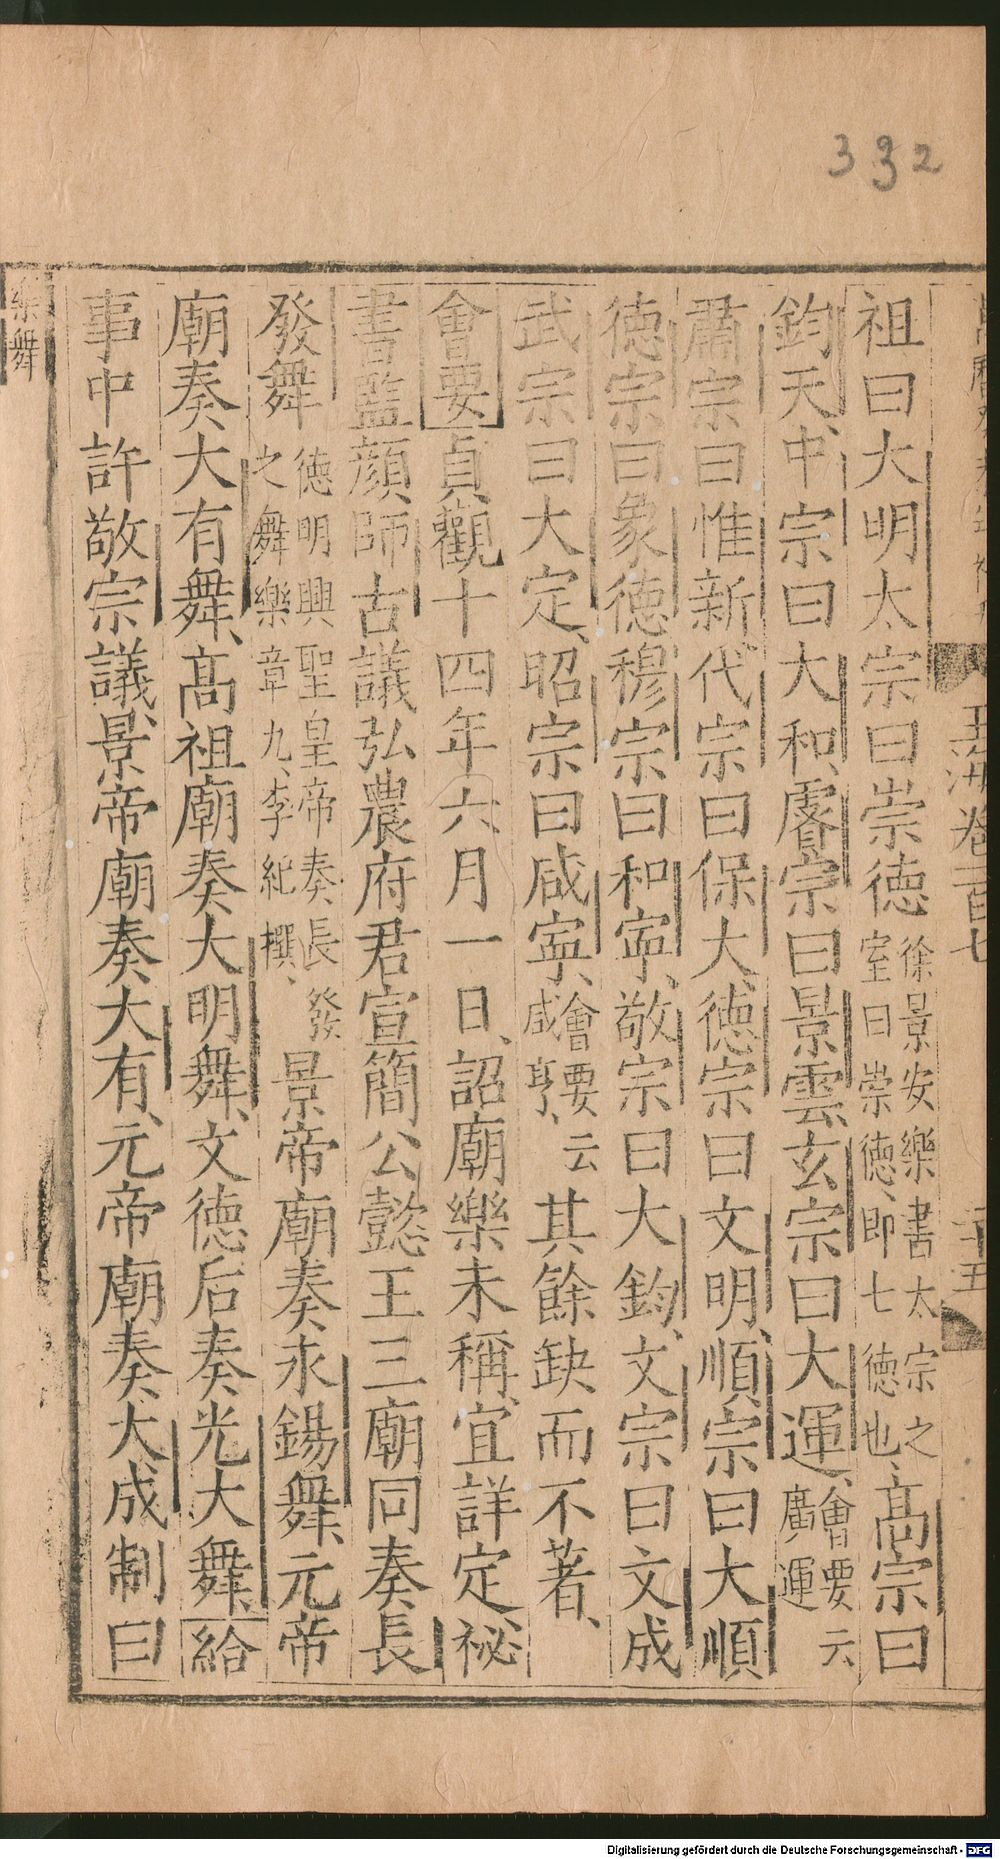 332
玉海卷一百七
二十五
祖曰大明太宗曰崇德徐景安樂書太宗之室曰崇德、即七德也、高宗曰
鈞天、中宗曰大和、睿宗曰景雲、玄宗曰大運、會要云廣運
肅宗曰惟新、代宗曰保大、德宗曰文明、順宗曰大順
德宗曰象德穆宗曰和寧、敬宗曰大鈞、文宗曰文成
武宗曰大定、昭宗曰咸寧、會要云咸亨、其餘缺而不著、
會要貞觀十四年六月一日、詔廟樂未稱、宜詳定、祕
書監顏師古議弘農府君宣簡公懿王三廟同奏長
發舞德明興聖皇帝奏長發之舞樂章九、李紓撰、景帝廟奏永錫舞、元帝
廟奏大有舞、高祖廟奏大明舞、文德后奏光大舞、給
事中許敬宗議、景帝廟奏大有、元帝廟奏大成制曰
樂舞
Digitalisierung gefördert durch die Deutsche Forschungsgemeinschaft - DFG